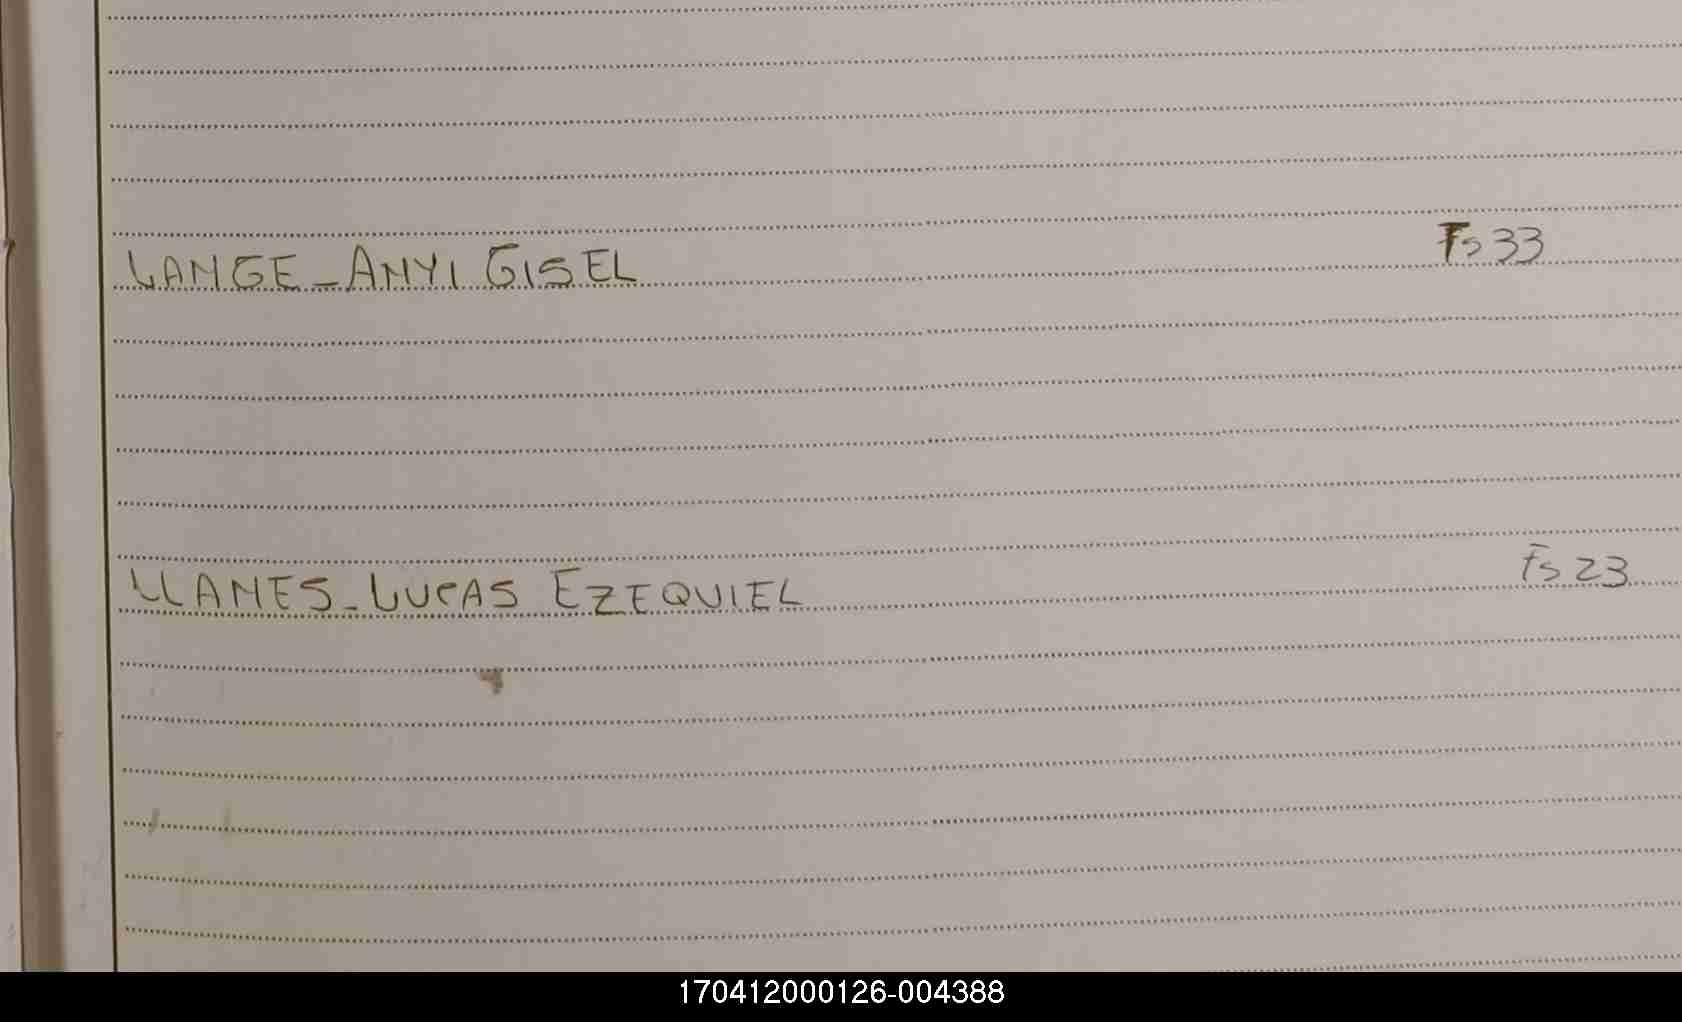 LANGE - ANYI GISEL Fs 33
LLANES - LUCAS EZEQUIEL Fs 23
170412000126-004388